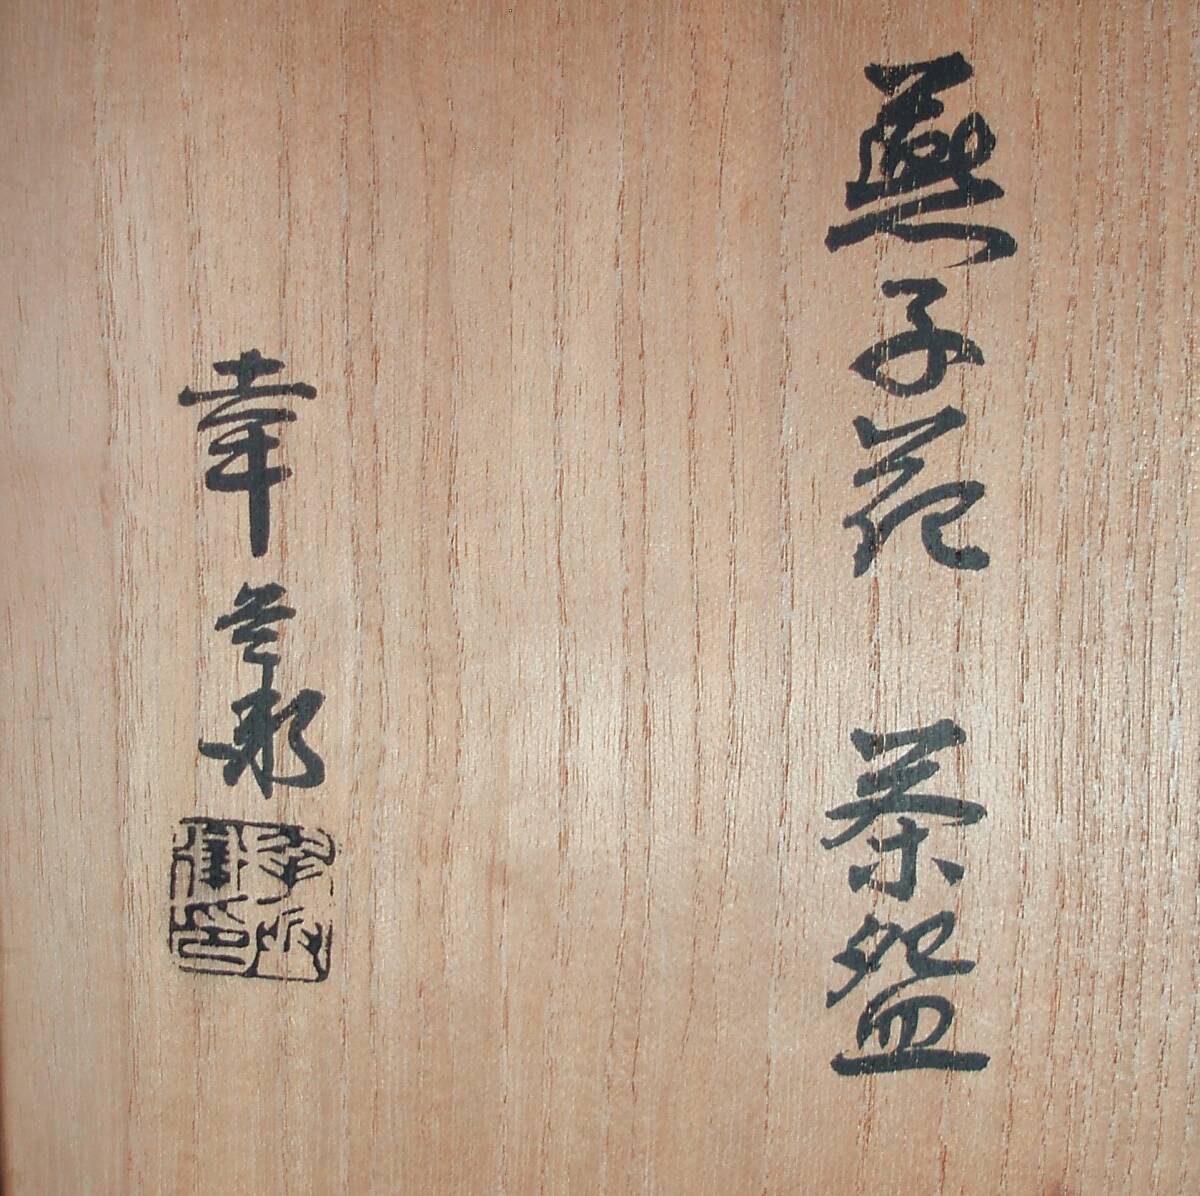 燕子花 茶盌
幸兵衛